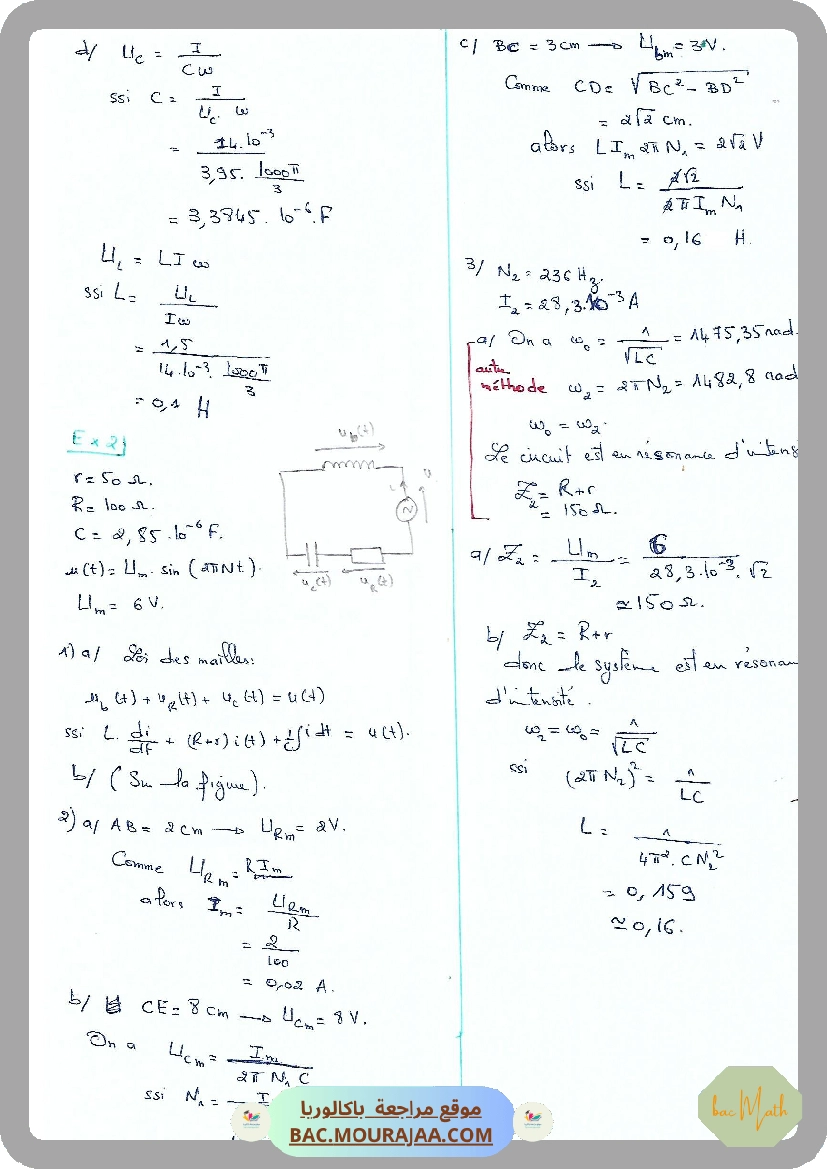 d/ U_C = I / Cω
ssi C = I / U_C . ω
= 14.10⁻³ / 3,95. 1000π/3
= 3,3845. 10⁻⁶.F
U_L = LIω
ssi L = U_L / Iω
= 1,5 / 14.10⁻³. 1000π/3
= 0,1 H
Ex 2)
r = 50 Ω.
R = 100 Ω.
C = 2,85.10⁻⁶ F.
u(t) = U_m. sin (2πNt).
U_m = 6 V.
u_b(t)
N
u_c(t)
u_R(t)
1) a/ Loi des mailles:
u_b(t) + u_R(t) + u_c(t) = u(t)
ssi L. di/dt + (R+r) i(t) + 1/C ∫ i dt = u(t).
b/ (Sur la figure).
2) a/ AB = 2 cm → U_Rm = 2V.
Comme U_Rm = R I_m
alors I_m = U_Rm / R
= 2 / 100
= 0,02 A.
b/ CE = 8 cm → U_Cm = 8 V.
On a U_Cm = I_m / 2π N₁ C
ssi N₁ = I
c/ BC = 3 cm → U_bm = 3V.
Comme CD = √(BC² - BD²)
= 2√2 cm.
alors L I_m 2π N₁ = 2√2 V
ssi L = 2√2 / 2π I_m N₁
= 0,16 H.
3/ N₂ = 236 Hz.
I₂ = 28,3.10⁻³ A
a/ On a ω₀ = 1 / √LC = 1475,35 rad
autre
méthode ω₂ = 2πN₂ = 1482,8 rad
ω₀ = ω₂.
Le circuit est en résonance d'intens
Z₂ = R+r
= 150 Ω.
a/ Z₂ = U_m / I₂ = 6 / 28,3.10⁻³. √2
≃ 150 Ω.
b/ Z₂ = R+r
donc le système est en résonan
d'intensité.
ω₂ = ω₀ = 1 / √LC
ssi (2π N₂)² = 1 / LC
L = 1 / 4π². C N₂²
= 0,159
≃ 0,16.
موقع مراجعة باكالوريا
BAC.MOURAJAA.COM
bac Math